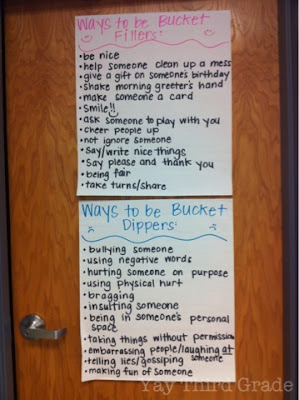 Ways to be Bucket
Fillers:
• be nice
• help someone clean up a mess
• give a gift on someone's birthday
• Shake morning greeter's hand
• make someone a card
• Smile!!
• ask someone to play with you
• cheer people up
• not ignore someone
• Say/write nice things
• Say please and thank you
• being fair
• take turns/share
Ways to be Bucket
Dippers:
• bullying someone
• using negative words
• hurting someone on purpose
• using physical hurt
• bragging
• insulting someone
• being in someone's personal
space
• taking things without permission
• embarrassing people/laughing at
• telling lies/gossiping someone
• making fun of someone
Yay Third Grade